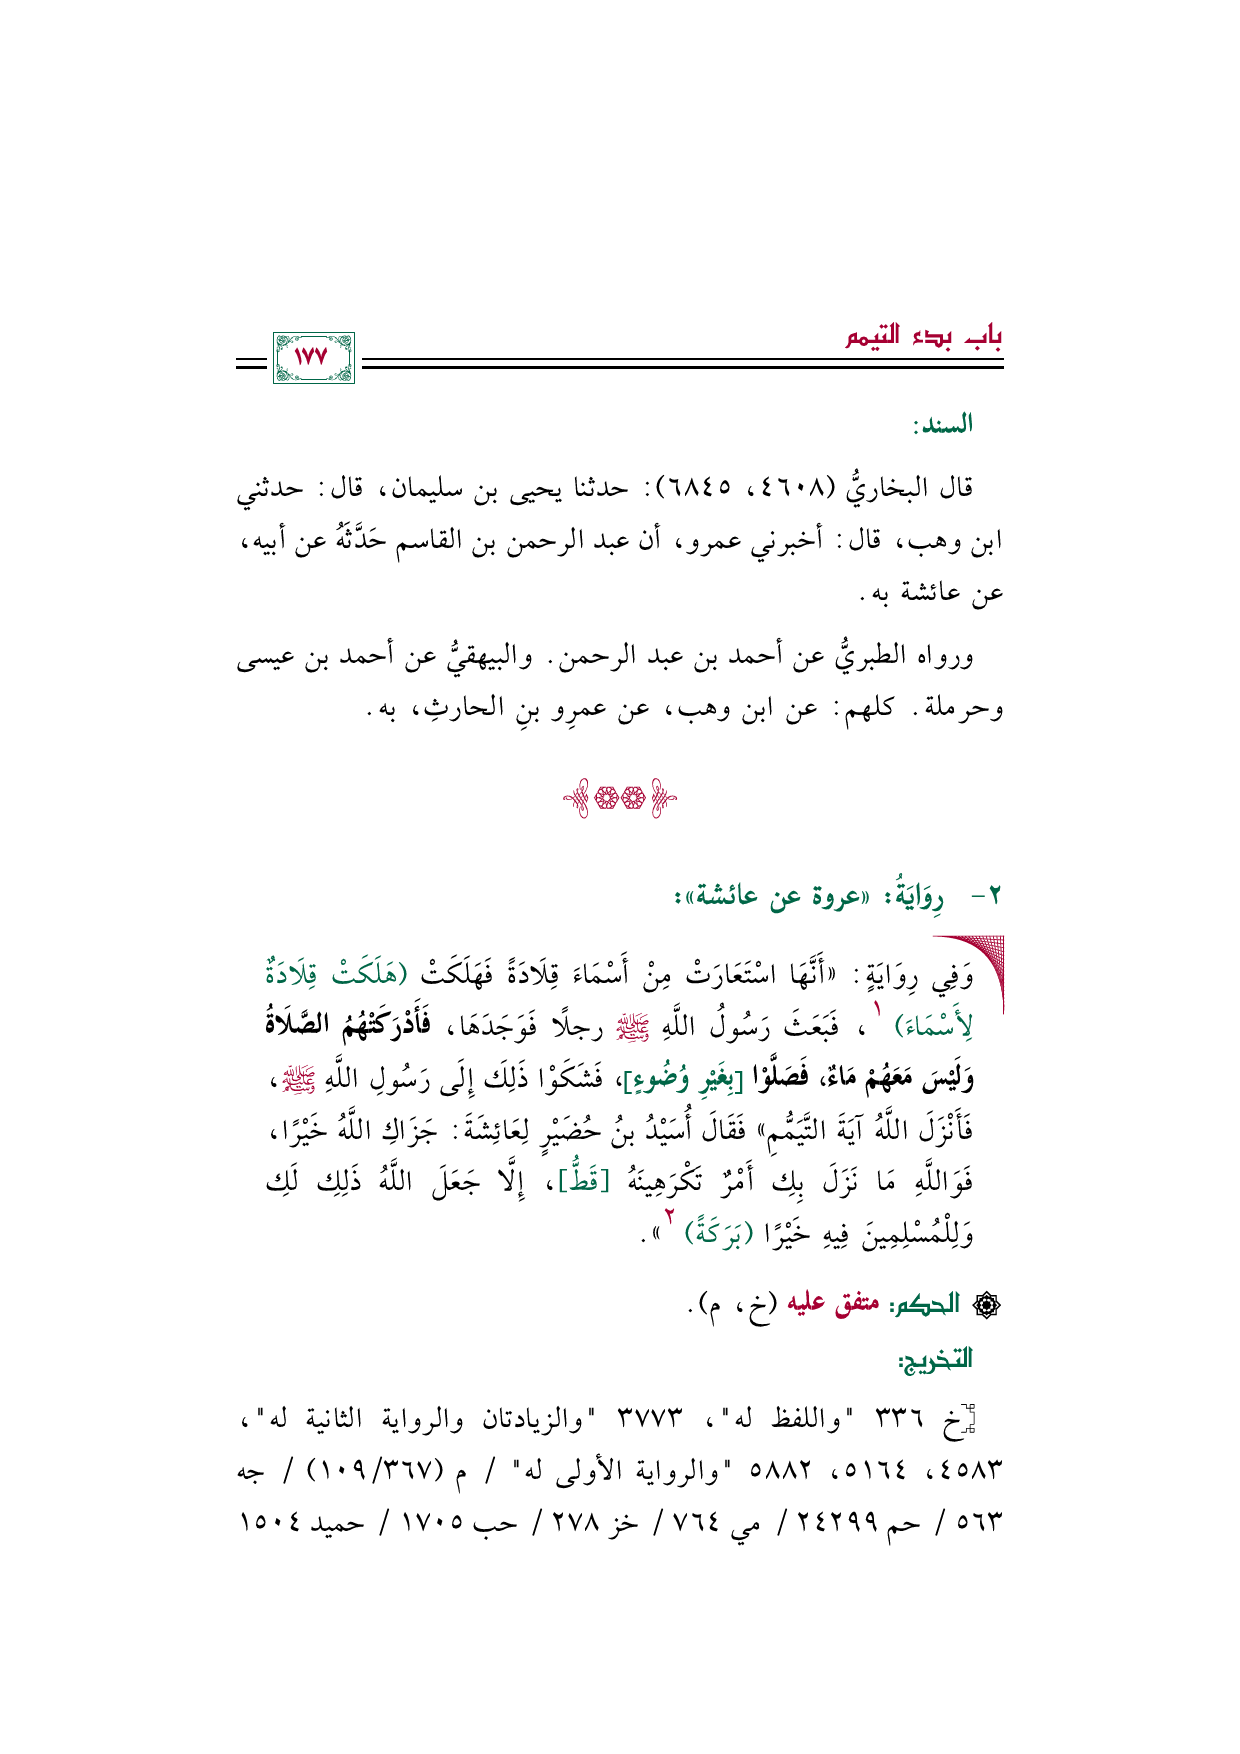 باب بدء التيمم
١٧٧
السند:
قال البخاريُّ (٤٦٠٨، ٦٨٤٥): حدثنا يحيى بن سليمان، قال: حدثني
ابن وهب، قال: أخبرني عمرو، أن عبد الرحمن بن القاسم حَدَّثَهُ عن أبيه،
عن عائشة به.
ورواه الطبريُّ عن أحمد بن عبد الرحمن. والبيهقيُّ عن أحمد بن عيسى
وحرملة. كلهم: عن ابن وهب، عن عمرِو بنِ الحارثِ، به.
٢- رِوَايَةُ: «عروة عن عائشة»:
وَفِي رِوَايَةٍ: «أَنَّهَا اسْتَعَارَتْ مِنْ أَسْمَاءَ قِلَادَةً فَهَلَكَتْ (هَلَكَتْ قِلَادَةٌ
لِأَسْمَاءَ) ١، فَبَعَثَ رَسُولُ اللَّهِ ﷺ رجلًا فَوَجَدَهَا، فَأَدْرَكَتْهُمُ الصَّلَاةُ
وَلَيْسَ مَعَهُمْ مَاءٌ، فَصَلَّوْا [بِغَيْرِ وُضُوءٍ]، فَشَكَوْا ذَلِكَ إِلَى رَسُولِ اللَّهِ ﷺ،
فَأَنْزَلَ اللَّهُ آيَةَ التَّيَمُّمِ» فَقَالَ أُسَيْدُ بنُ حُضَيْرٍ لِعَائِشَةَ: جَزَاكِ اللَّهُ خَيْرًا،
فَوَاللَّهِ مَا نَزَلَ بِكِ أَمْرٌ تَكْرَهِينَهُ [قَطُّ]، إِلَّا جَعَلَ اللَّهُ ذَلِكِ لَكِ
وَلِلْمُسْلِمِينَ فِيهِ خَيْرًا (بَرَكَةً) ٢».
الحكم: متفق عليه (خ، م).
التخريج:
خ ٣٣٦ "واللفظ له"، ٣٧٧٣ "والزيادتان والرواية الثانية له"،
٤٥٨٣، ٥١٦٤، ٥٨٨٢ "والرواية الأولى له" / م (٣٦٧/ ١٠٩) / جه
٥٦٣ / حم ٢٤٢٩٩ / مي ٧٦٤ / خز ٢٧٨ / حب ١٧٠٥ / حميد ١٥٠٤